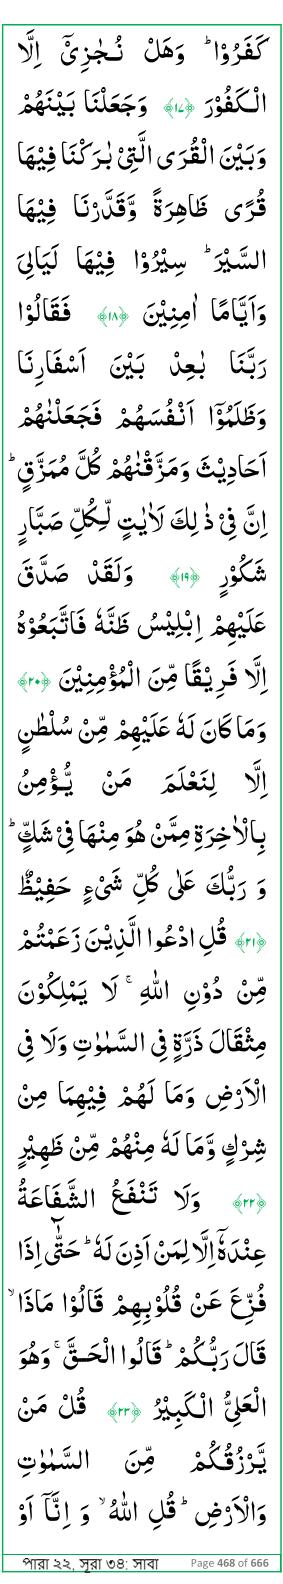 كَفَرُوْا ؕ وَهَلْ نُجٰزِيْۤ اِلَّا
الْكَفُوْرَ ﴿۱۷﴾ وَجَعَلْنَا بَيْنَهُمْ
وَبَيْنَ الْقُرَى الَّتِيْ بٰرَكْنَا فِيْهَا
قُرًى ظَاهِرَةً وَّقَدَّرْنَا فِيْهَا
السَّيْرَ ؕ سِيْرُوْا فِيْهَا لَيَالِيَ
وَاَيَّامًا اٰمِنِيْنَ ﴿۱۸﴾ فَقَالُوْا
رَبَّنَا بٰعِدْ بَيْنَ اَسْفَارِنَا
وَظَلَمُوْۤا اَنْفُسَهُمْ فَجَعَلْنٰهُمْ
اَحَادِيْثَ وَمَزَّقْنٰهُمْ كُلَّ مُمَزَّقٍ ؕ
اِنَّ فِيْ ذٰ لِكَ لَاٰيٰتٍ لِّكُلِّ صَبَّارٍ
شَكُوْرٍ ﴿۱۹﴾ وَلَقَدْ صَدَّقَ
عَلَيْهِمْ اِبْلِيْسُ ظَنَّهٗ فَاتَّبَعُوْهُ
اِلَّا فَرِيْقًا مِّنَ الْمُؤْمِنِيْنَ ﴿۲۰﴾
وَمَا كَانَ لَهٗ عَلَيْهِمْ مِّنْ سُلْطٰنٍ
اِلَّا لِنَعْلَمَ مَنْ يُّؤْمِنُ
بِالْاٰخِرَةِ مِمَّنْ هُوَ مِنْهَا فِيْ شَكٍّ ؕ
وَ رَبُّكَ عَلٰى كُلِّ شَيْءٍ حَفِيْظٌ
﴿۲۱﴾ قُلِ ادْعُوا الَّذِيْنَ زَعَمْتُمْ
مِّنْ دُوْنِ اللّٰهِ ۚ لَا يَمْلِكُوْنَ
مِثْقَالَ ذَرَّةٍ فِي السَّمٰوٰتِ وَلَا فِي
الْاَرْضِ وَمَا لَهُمْ فِيْهِمَا مِنْ
شِرْكٍ وَّمَا لَهٗ مِنْهُمْ مِّنْ ظَهِيْرٍ
﴿۲۲﴾ وَلَا تَنْفَعُ الشَّفَاعَةُ
عِنْدَهٗۤ اِلَّا لِمَنْ اَذِنَ لَهٗ ؕ حَتّٰۤى اِذَا
فُزِّعَ عَنْ قُلُوْبِهِمْ قَالُوْا مَاذَا ۙ
قَالَ رَبُّكُمْ ؕ قَالُوا الْحَقَّ ۚ وَهُوَ
الْعَلِيُّ الْكَبِيْرُ ﴿۲۳﴾ قُلْ مَنْ
يَّرْزُقُكُمْ مِّنَ السَّمٰوٰتِ
وَالْاَرْضِ ؕ قُلِ اللّٰهُ ۙ وَ اِنَّاۤ اَوْ
পারা ২২, সূরা ৩৪: সাবা Page 468 of 666